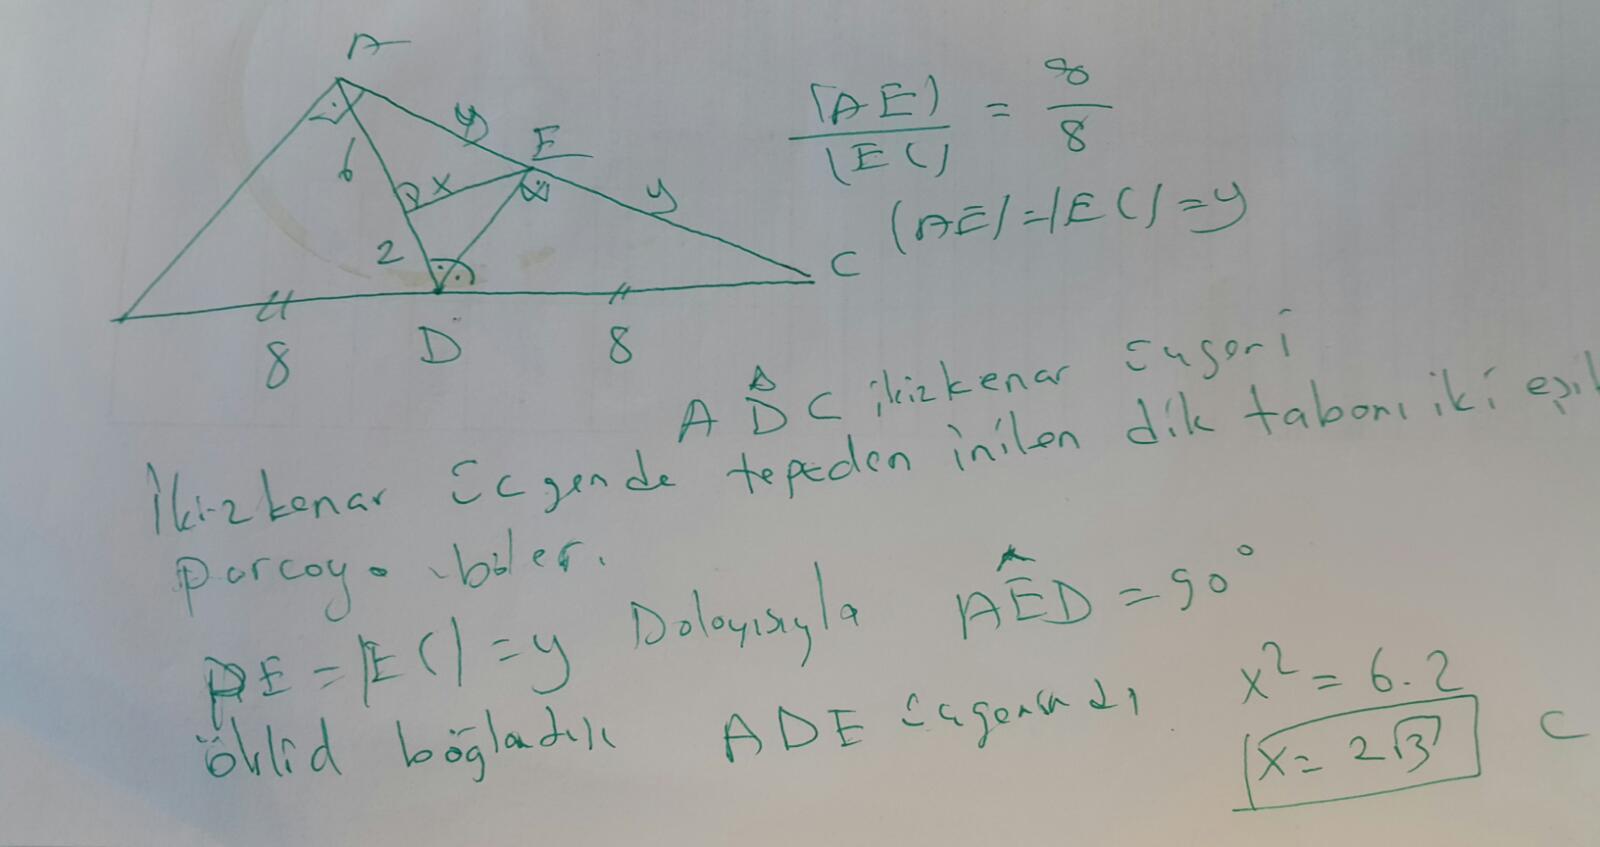 A
y
E
|AE| / |EC| = 8/8
6
x
y
|AE|=|EC|=y
2
C
8
D
8
ADC ikizkenar üçgeni
İkizkenar üçgende tepeden inilen dik tabanı iki eşit
parçaya böler.
AE=|EC|=y Dolayısıyla AED=90°
öklid bağladık ADE üçgeninde x²=6.2
x=2√3 C